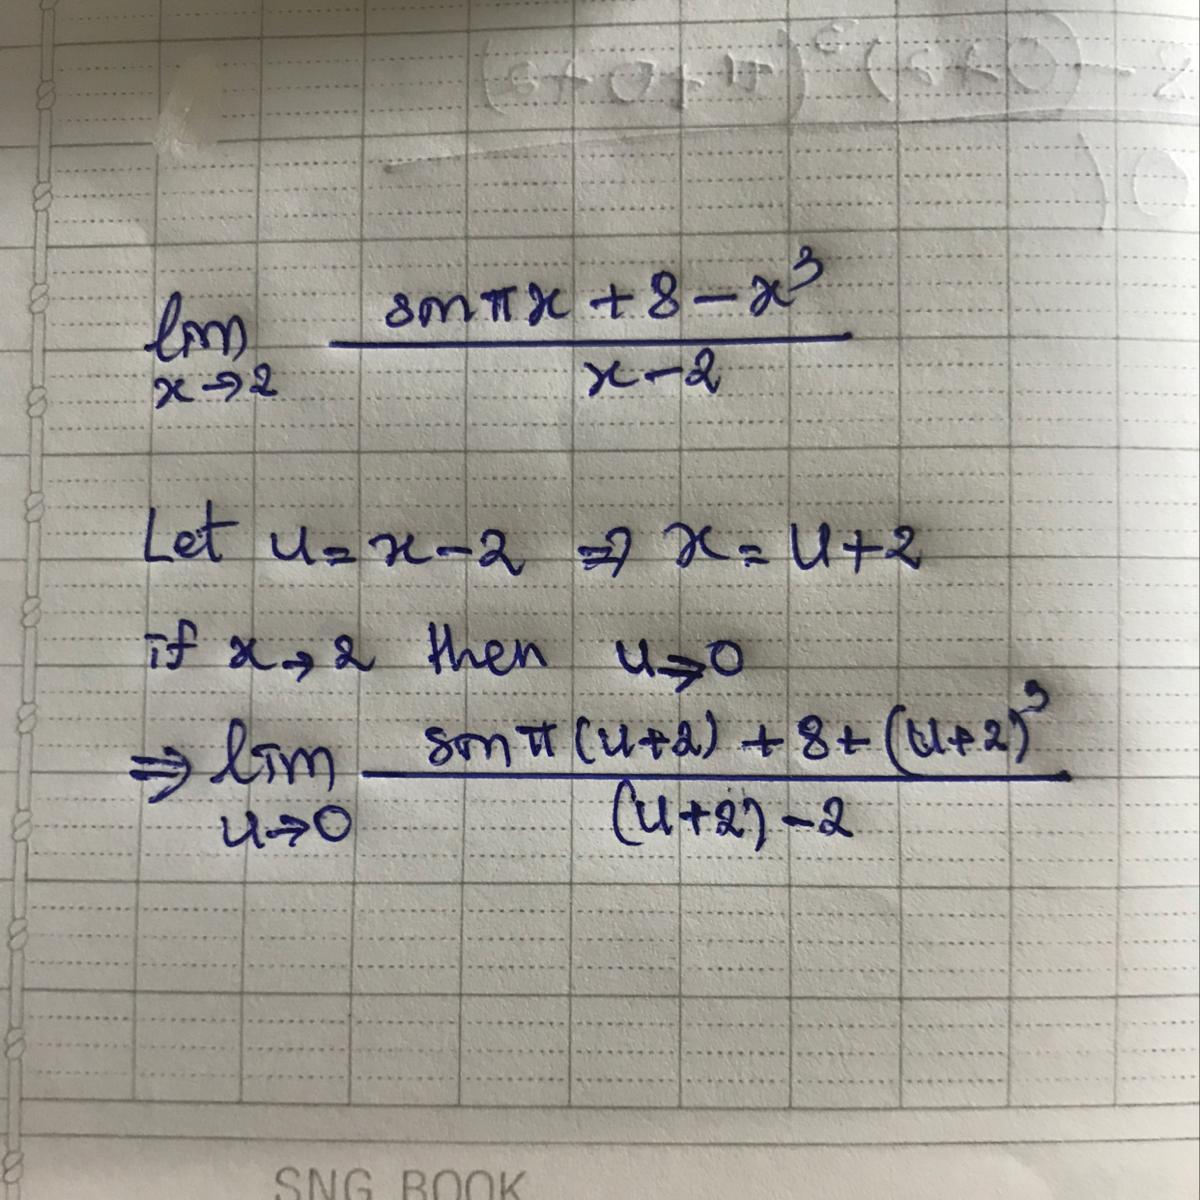 lim sinπx + 8 - x³
x→2 x-2
Let u = x-2 ⇒ x = u+2
if x→2 then u→0
⇒ lim sinπ(u+2) + 8 + (u+2)³
u→0 (u+2)-2
SNG BOOK